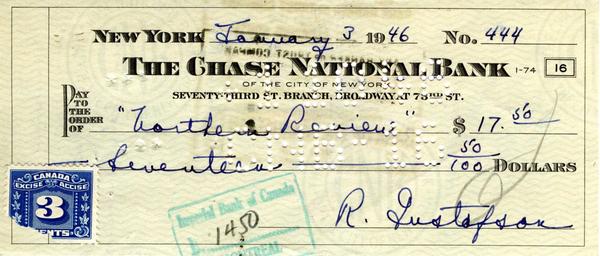 NEW YORK January 3 1946 No. 444
THE CHASE NATIONAL BANK 1-74 16
OF THE CITY OF NEW YORK
SEVENTY-THIRD ST. BRANCH, BROADWAY AT 73RD ST.
PAY TO THE ORDER OF "Northern Review" $ 17.50
Seventeen 50/100 DOLLARS
CANADA
EXCISE ACCISE
3
CENTS
Imperial Bank of Canada
1450
MONTREAL
R. Gustafson